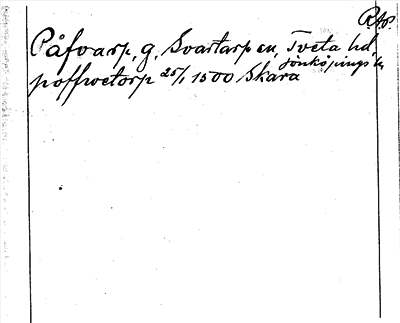 Rfs.
Påfvarp, g, Svartarp en, Tveta hd,
Jönköpings l.
poffwetorp 25/1 1500 Skara